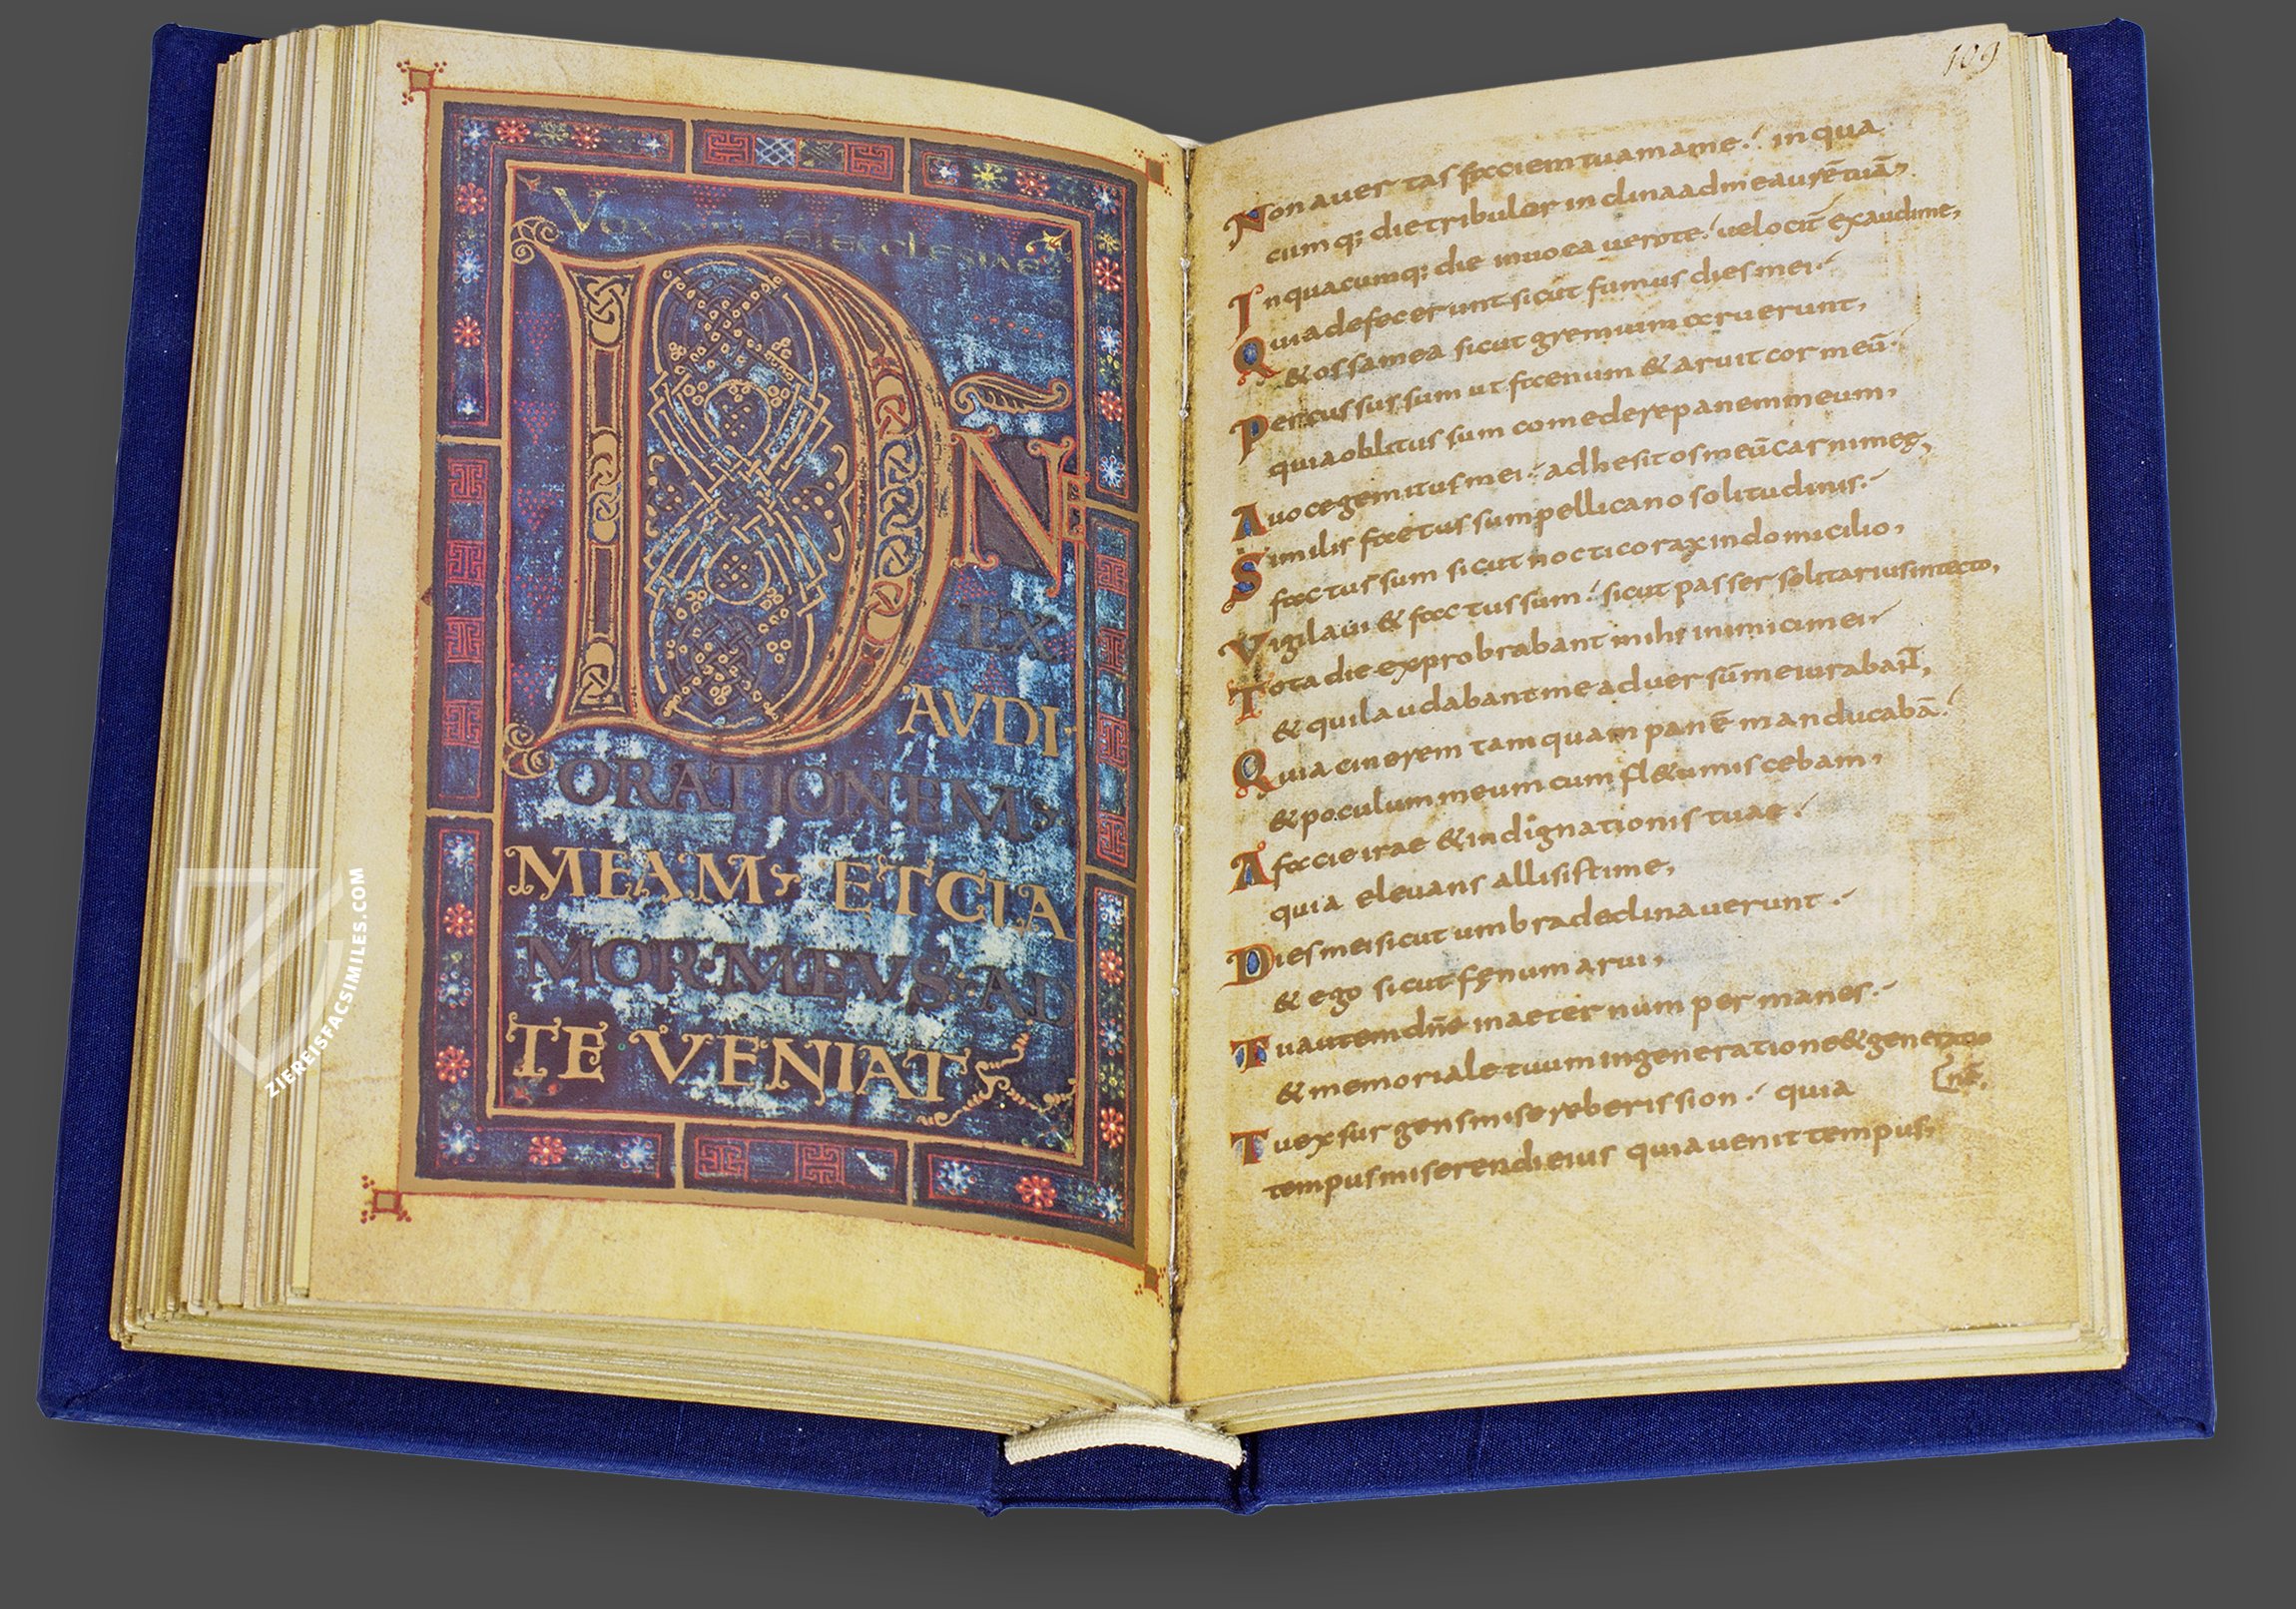 Vox
ecclesiae
DN̄E
EX
AVDI·
ORATIONEM
MEAM ETCLA
MOR·MEVS·AD
TE VENIAT
109
Non auertas faciem tuam a me. in qua
cumq; die tribulor inclina ad me aurē tuā,
In quacumq; die inuocauero te. uelocit̄ exaudi me,
Quia defecerunt sicut fumus dies mei.
& ossa mea sicut gremium aruerunt,
Percussus sum ut faenum & aruit cor meū.
quia oblitus sum comedere panem meum,
A uoce gemitus mei. adhesit os meū carni meę,
Similis factus sum pellicano solitudinis.
factus sum sicut nocticorax in domicilio,
Vigilaui & factus sum. sicut passer solitarius in tecto,
Tota die exprobrabant mihi inimici mei.
& qui laudabant me aduersū me iurabant,
Quia cinerem tamquam panē manducabā.
& poculum meum cum fl&u miscebam,
A facie irae & indignationis tuae.
quia eleuans allisisti me,
Dies mei sicut umbra declinauerunt.
& ego sicut fęnum arui,
Tu autem dn̄e in aeternum permanes.
& memoriale tuum in generatione & generatio
[nē,
Tu exsurgens misereberis sion. quia
tempus miserendi eius quia uenit tempus,
ZIEREISFACSIMILES.COM